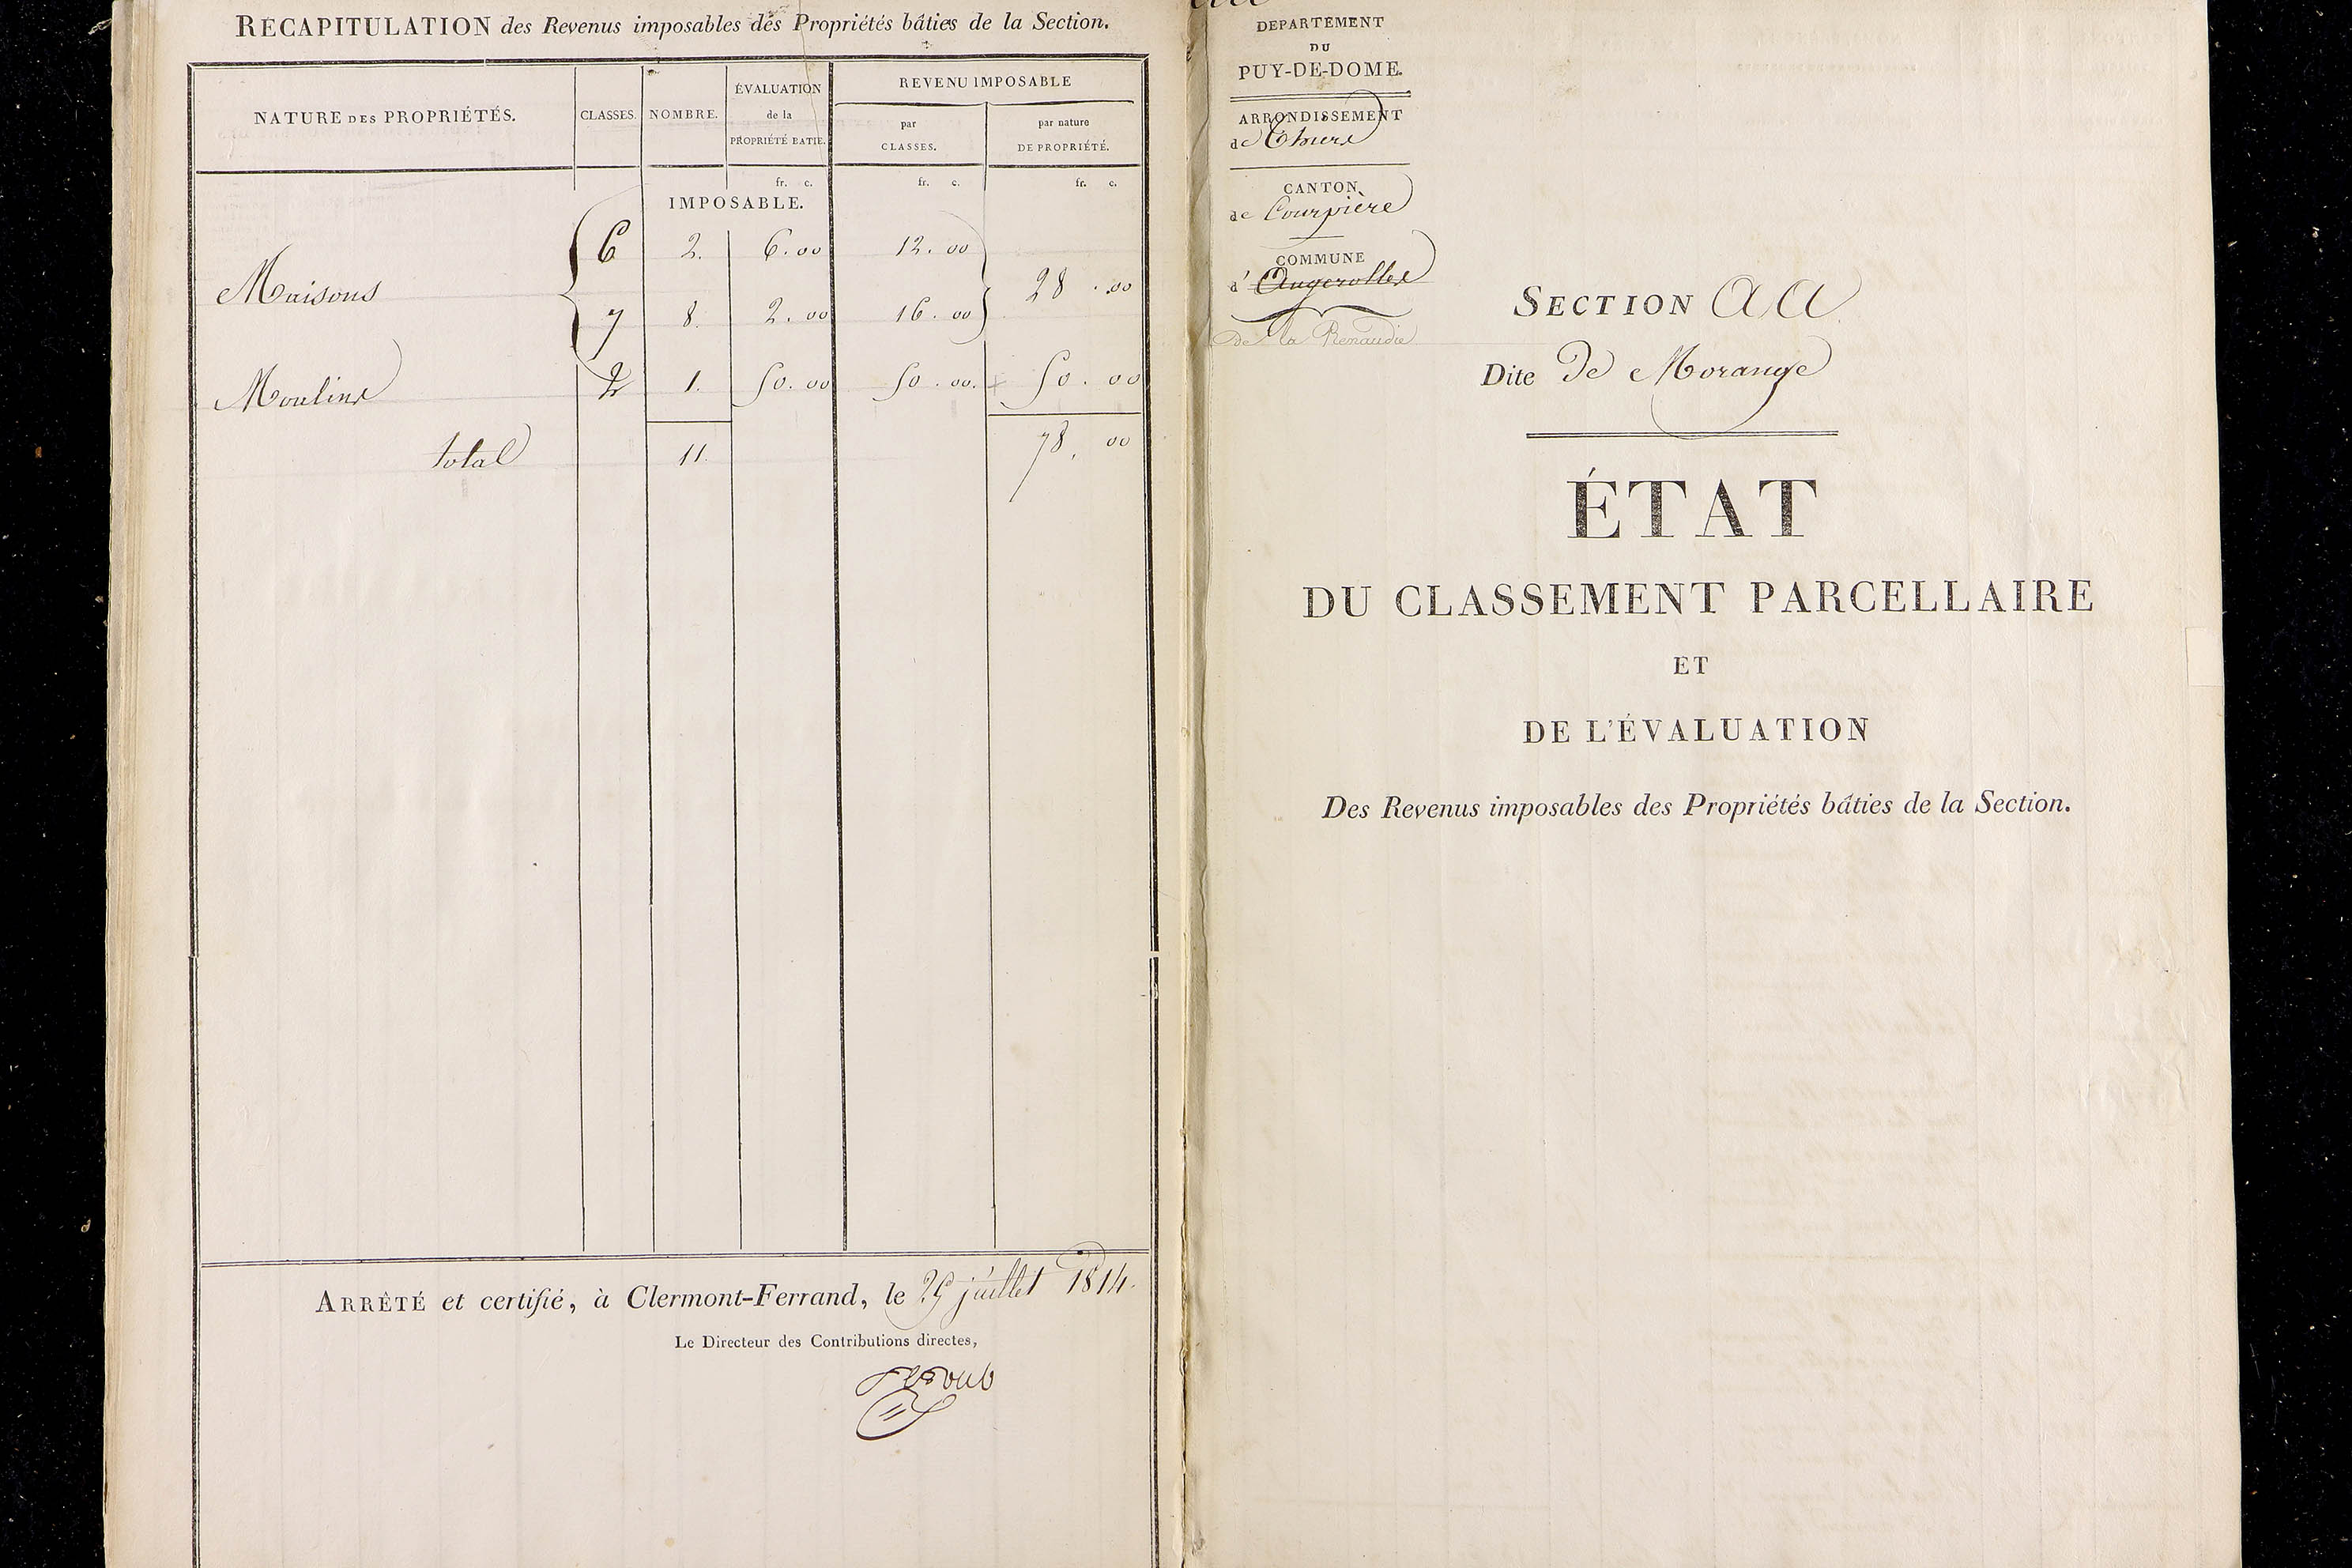 RÉCAPITULATION des Revenus imposables des Propriétés bâties de la Section.
NATURE DES PROPRIÉTÉS. CLASSES. NOMBRE. ÉVALUATION de la PROPRIÉTÉ BATIE. REVENU IMPOSABLE
par CLASSES. par nature DE PROPRIÉTÉ.
fr. c. fr. c. fr. c.
IMPOSABLE.
Maisons 6 2. 6.00 12.00
7 8. 2.00 16.00 28.00
Moulins 2 1. 50.00 50.00. 50.00
total 11. 78,00
ARRÊTÉ et certifié, à Clermont-Ferrand, le 29 juillet 1814.
Le Directeur des Contributions directes,
DEPARTEMENT
DU
PUY-DE-DOME.
ARRONDISSEMENT
de Thiers
CANTON
de Courpière
COMMUNE
d'Augerolles
De la Renaudie
SECTION AA
Dite De Morange
ÉTAT
DU CLASSEMENT PARCELLAIRE
ET
DE L'ÉVALUATION
Des Revenus imposables des Propriétés bâties de la Section.